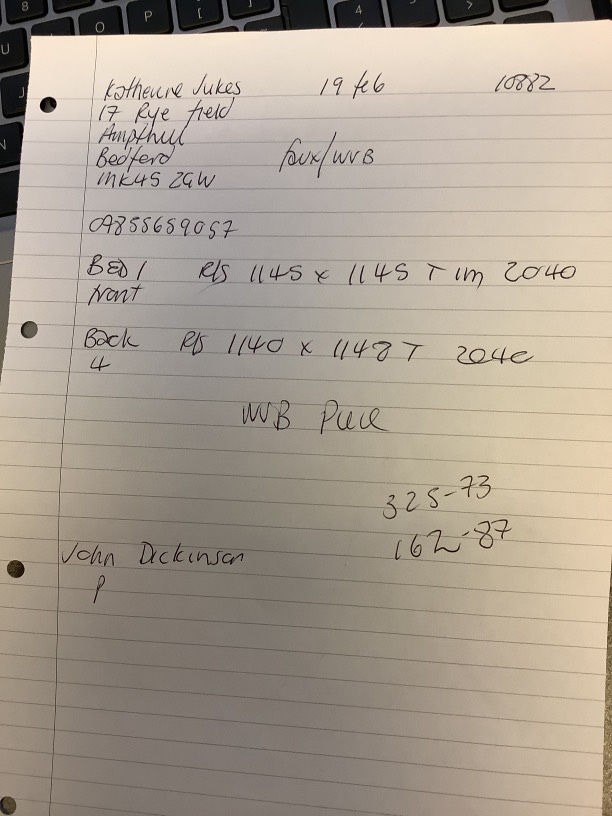 Katherine Jukes 19 feb 10882
17 Rye field
Ampthill
Bedford faux/WVB
MK45 2GW
09855659057
BED 1 R/S 1145 x 1145 T 1m 2040
front
Back R/S 1140 x 1148 T 2040
4
WVB Pure
325-73
162-87
John Dickinson
P